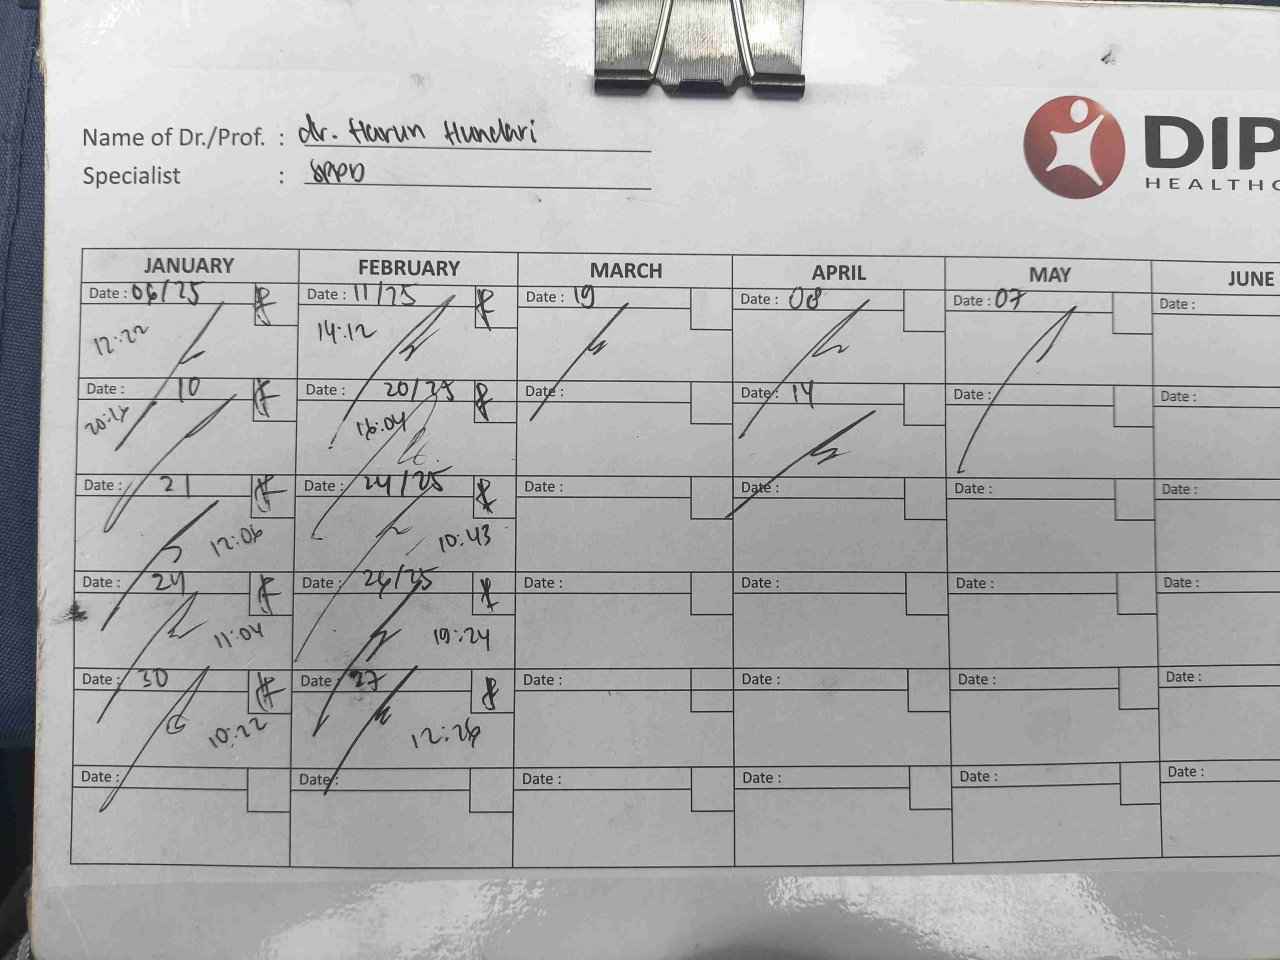 Name of Dr./Prof. : dr. Harun Hundari
Specialist : SPPD
DIP
HEALTHC
JANUARY FEBRUARY MARCH APRIL MAY JUNE
Date : 06/25 Date : 11/25 Date : 19 Date : 08 Date : 07 Date :
12:22 14:12
Date : 10 Date : 20/25 Date : Date : 14 Date : Date :
16:04
Date : 21 Date : 24/25 Date : Date : Date : Date :
12:06 10:43
Date : 24 Date : 26/25 Date : Date : Date : Date :
11:04 19:24
Date : 30 Date : 27 Date : Date : Date : Date :
10:22 12:26
Date : Date : Date : Date : Date : Date :